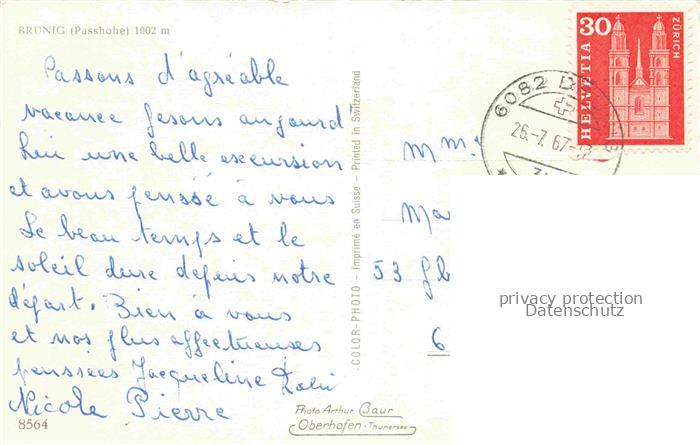 BRÜNIG (Passhöhe) 1002 m
Passons d'agréable
vacance fesons aujourd'
hui une belle excursion
et avons penssé à vous
Le beau temps et le
soleil dure depuis notre
départ. Bien à vous
et nos plus affectueuses
penssées Jacqueline
Nicole Pierre
8564
COLOR-PHOTO – Imprimé en Suisse – Printed in Switzerland
Photo Arthur Baur
Oberhofen - Thunersee
HELVETIA
30
ZÜRICH
6082
26.-7.67
Mm.
Ma
53
6
privacy protection
Datenschutz